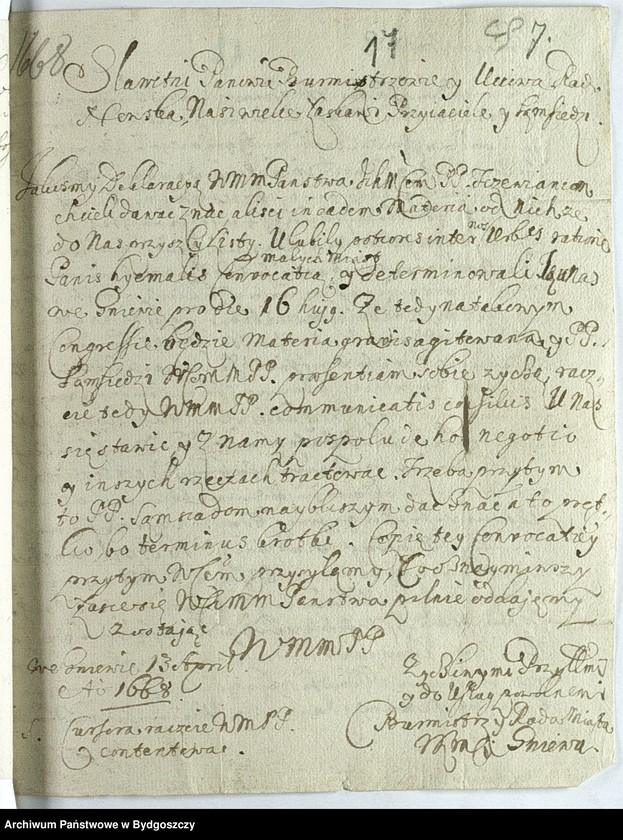 1668
17
7.
Slawetni Panowie Burmistrzowie y Ucciwa Rado
Nasi wielce Laskawi Przyiaciele y Sąmsiedzi.
Jakosmy Deklaracyą WMMPanstwa
chcieli dawac znac alisci in eadem Materia od nich ze
do Nas przyszly Listy. Ulubily potiores inter nos Urbes ratione
z malych Miast
Panis hyemalis convocatią y determinowali
we Gniewie pro die 16 hujg. Ze tedy na takowym
Congressie będzie materia gravis agitowana y PP.
Sąmsiedzi PP. praesentiam sobie zyczą, racz-
cie tedy WMMPP. communicatis consiliis U nas
się stawic y z namy pospolu de hoc negotio
y inszych rzeczach tractowac. Trzeba przytym
to PP. Sąmsiadom naybliszym dac znac a to pręt-
ko bo terminus krotki. Copię tey Convocatiey
przytym przysyląmy,
łasce się WMMM Panstwa pilnie oddaięmy
Zostaiąc
WMMPP
we Gniewie 13 April.
Ao 1668.
Zyczliwymi Przyllmi
y do Uslug powolnemi
Burmistrz y Rada Miasta
Gniewu.
Cursora raczcie WMPP.
contentowac.
Archiwum Państwowe w Bydgoszczy